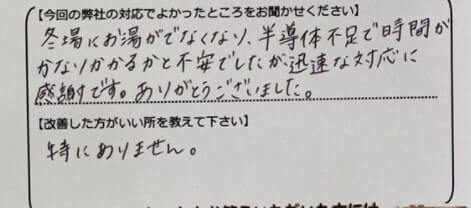 【今回の弊社の対応でよかったところをお聞かせください】
冬場にお湯がでなくなり、半導体不足で時間が
かなりかかるかと不安でしたが迅速な対応に
感謝です。ありがとうございました。
【改善した方がいい所を教えて下さい】
特にありません。